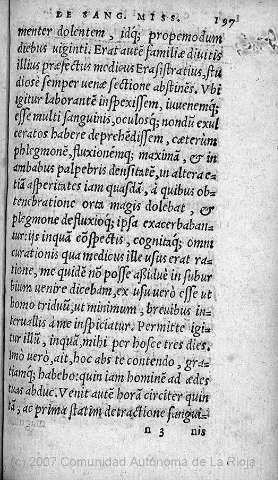 DE SANG. MISS. 197
menter dolentem, idq; propemodum
diebus uiginti. Erat autē familiæ diuitis
illius præfectus medicus Erasistratius, stu
diosè semper uenæ sectione abstinēs. Vbi
igitur laborantē inspexissem, iuuenemq;
esse multi sanguinis, oculosq; nondū exul
ceratos habere deprehēdissem, cæterùm
phlegmonē, fluxionēmq; maximā, & in
ambabus palpebris densitatē, in altera e-
tiā asperitates iam quasdā, à quibus ob-
tenebratione orta magis dolebat, &
phlegmone defluxioq; ipsa exacerbaban-
tur: ijs inquā cōspectis, cognitaq; omni
curationis qua medicus ille usus erat ra-
tione, me quidē nō posse aßiduè in subur
bium uenire dicebam, ex usu uerò esse ut
homo triduū, ut minimum, breuibus in-
teruallis à me inspiciatur. Permitte igi-
tur illū, inquā, mihi per hosce tres dies.
Imò uerò, ait, hoc abs te contendo, gra-
tiamq; habebo: quin iam hominē ad ædes
tuas abduc. Venit autē horā circiter quin
tā, ac prima statim detractione sangui-
n 3 nis
(c) 2007 Comunidad Autónoma de La Rioja